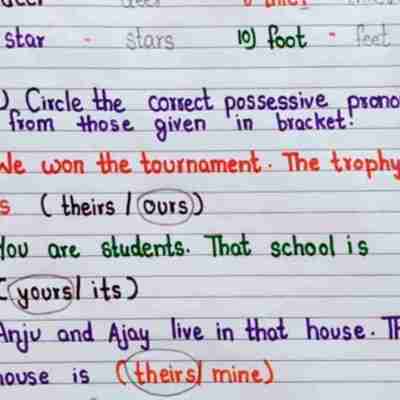 star - stars 10) foot - feet
) Circle the correct possessive prono
from those given in bracket!
We won the tournament. The trophy
s (theirs / ours)
You are students. That school is
(yours / its)
Anju and Ajay live in that house. Th
house is (theirs / mine)